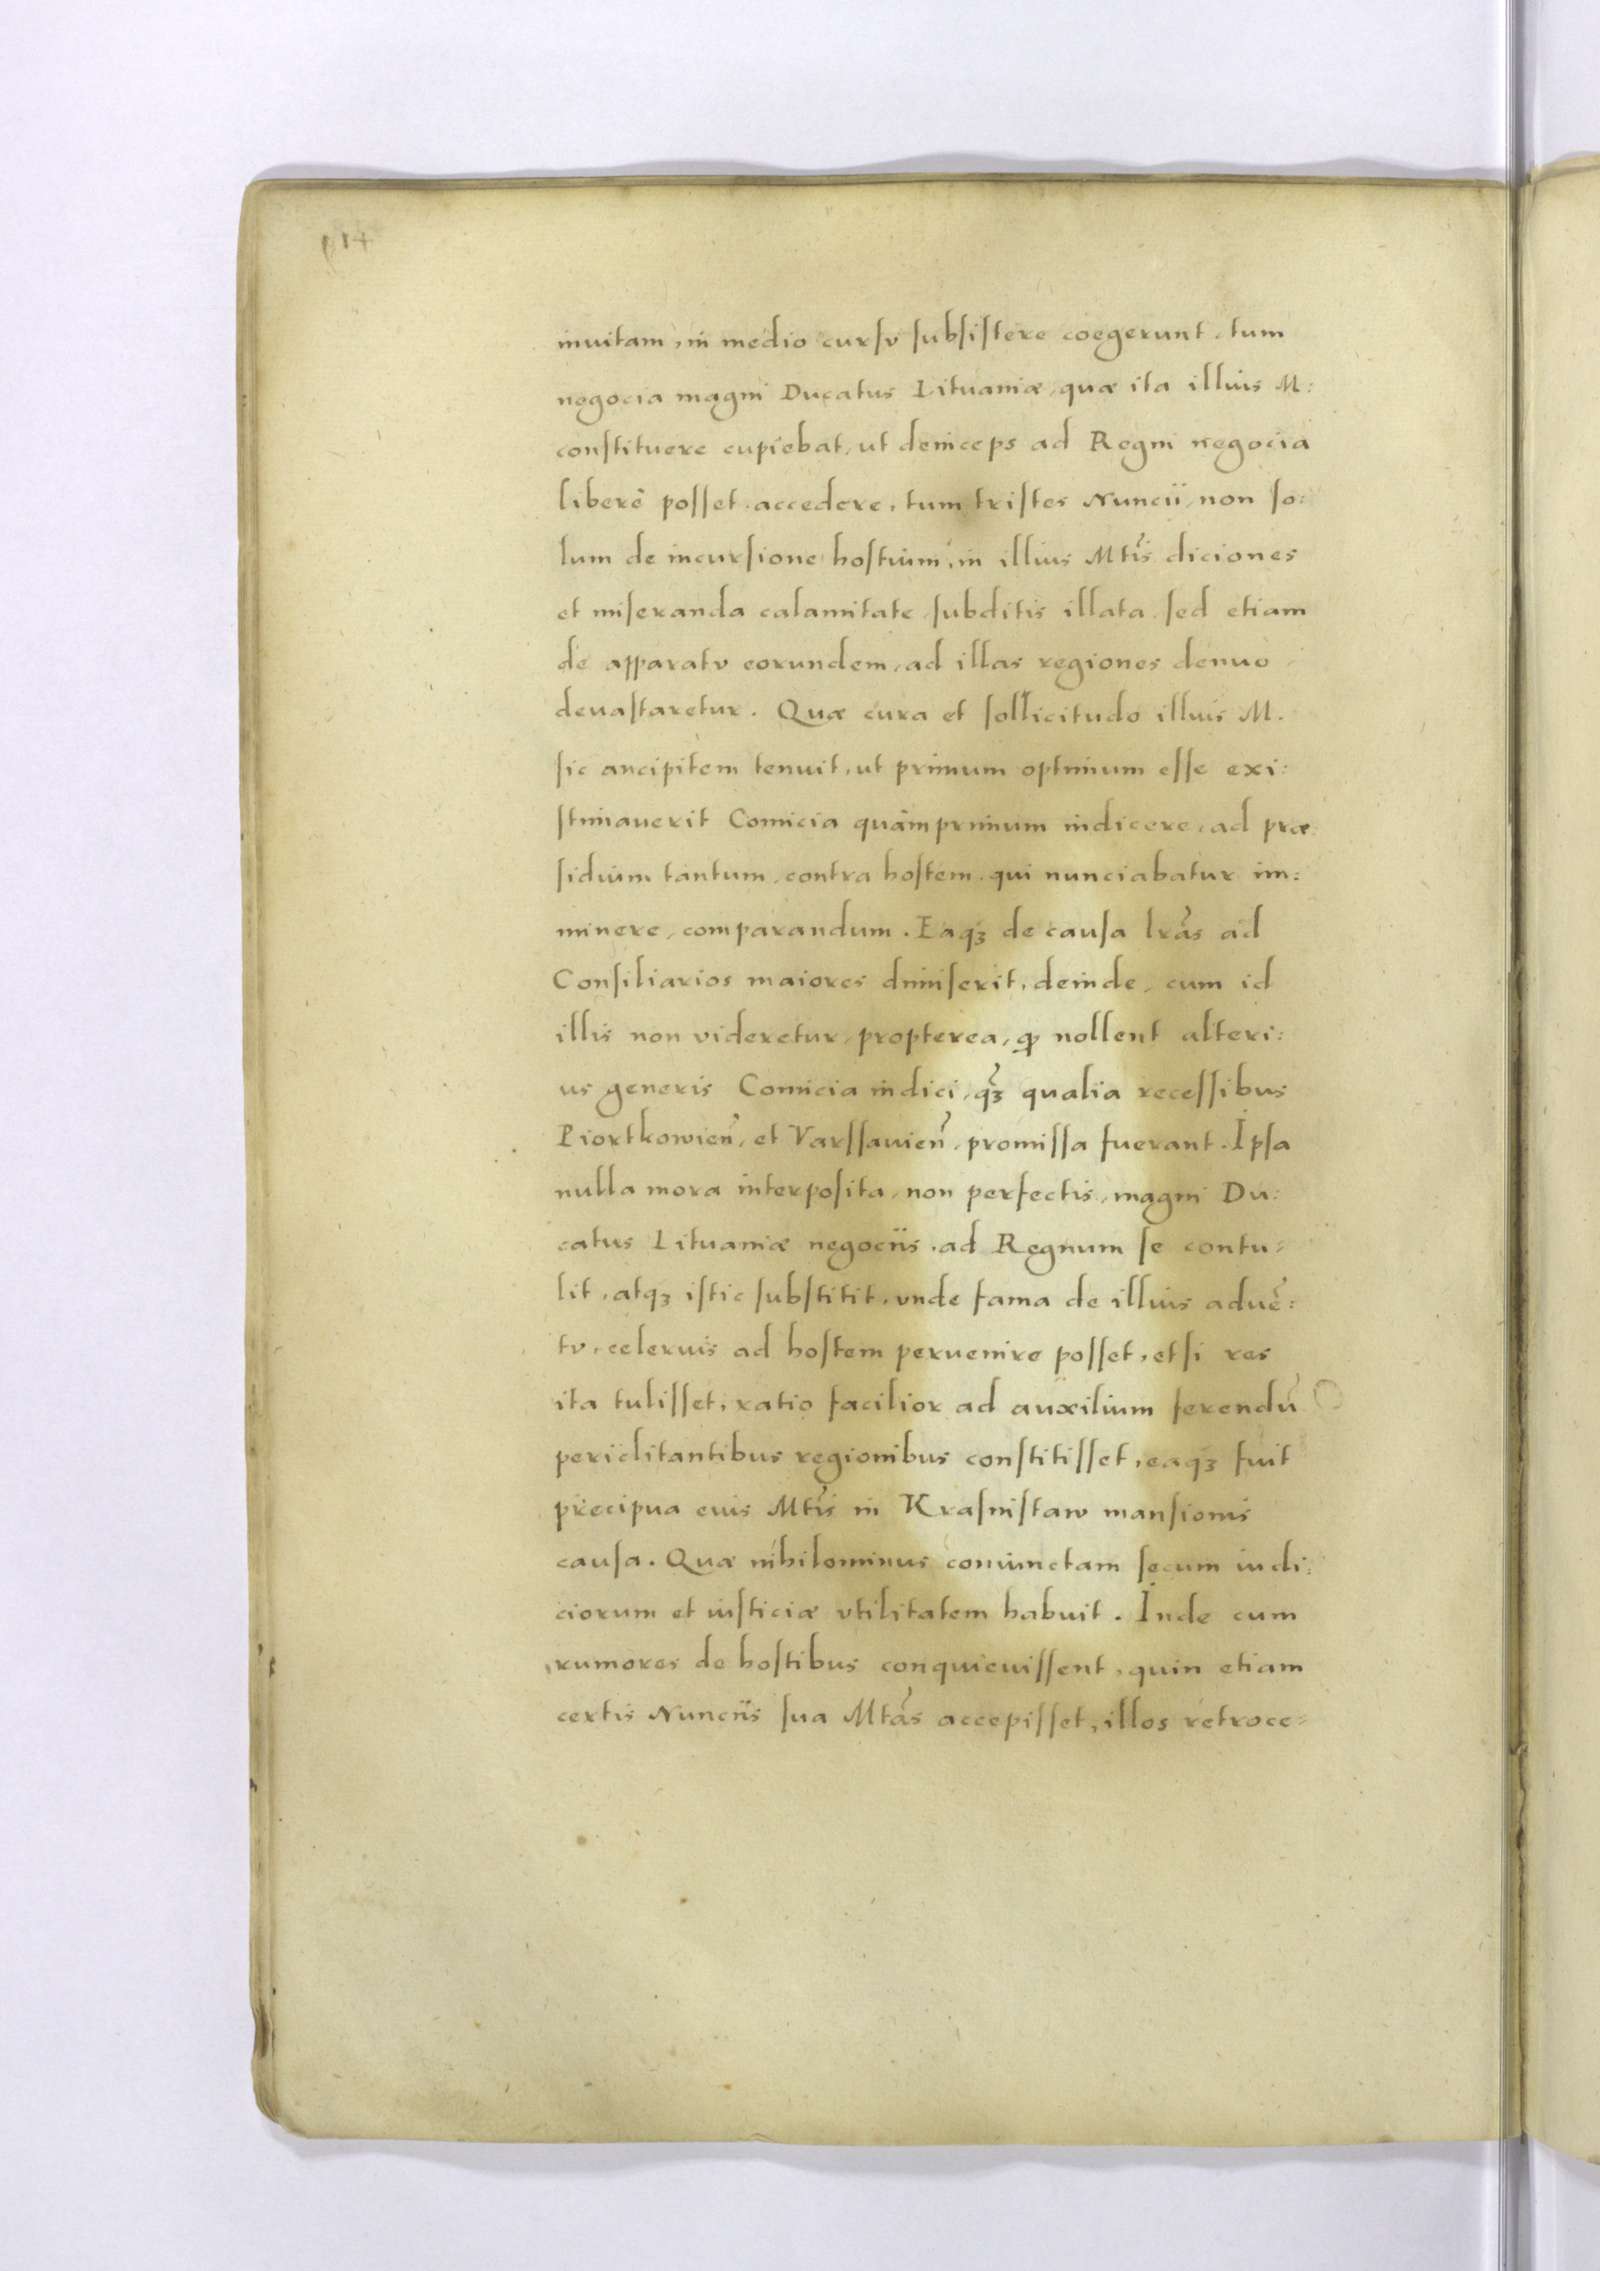 inuitam, in medio cursv subsistere coegerunt, tum
negocia magni Ducatus Lituaniæ, quæ ita illius M:
constituere cupiebat, ut deinceps ad Regni negocia
liberè posset accedere, tum tristes Nuncii, non so:
lum de incursione hostium, in illius Mtis diciones
et miseranda calamitate subditis illata, sed etiam
de apparatv eorundem, ad illas regiones denuo
deuastaretur. Quæ cura et sollicitudo illius M.
sic ancipitem tenuit, ut primum optimum esse exi:
stimauerit Comicia quàmprimum indicere, ad præ:
sidium tantum, contra hostem, qui nunciabatur im:
minere, comparandum. Eaqȝ de causa lrãs ad
Consiliarios maiores dimiserit, deinde, cum id
illis non videretur, propterea, ꝙ nollent alteri:
us generis Comicia indici, qȝ̃ qualia recessibus
Piortkowieñ, et Varssauieñ, promissa fuerant. Ipsa
nulla mora interposita, non perfectis, magni Du:
catus Lituaniæ negociis, ad Regnum se contu:
lit, atqȝ istic substitit, vnde fama de illius aduẽ:
tv, celerius ad hostem peruenire posset, et si res
ita tulisset, ratio facilior ad auxilium ferendũ
periclitantibus regionibus constitisset, eaqȝ fuit
precipua eius Mtis in Krasnistaw mansionis
causa. Quæ nihilominus coniunctam secum iudi:
ciorum et iusticiæ vtilitatem habuit. Inde cum
rumores de hostibus conquieuissent, quin etiam
certis Nunciis sua Mtãs accepisset, illos retroce: